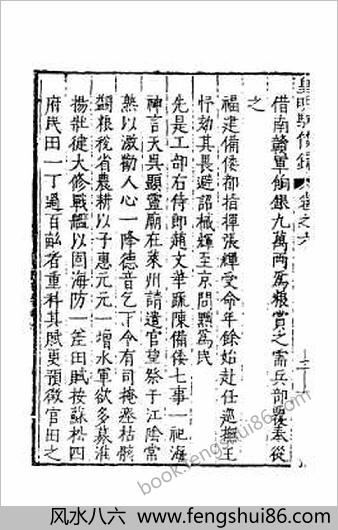 皇明馭倭錄 卷之六
借南贛軍餉銀九萬兩爲粮賞之需兵部覆奉從
之
福建備倭都指揮張輝受命年餘始赴任巡撫王
忬劾其畏避詔械輝至京問黜爲民
先是工部右侍郎趙文華疏陳備倭七事一祀海
神言天吳顯靈廟在萊州請遣官望祭于江陰常
熟以激勸人心一降德音乞下令有司掩瘞枯骸
蠲粮稅省農耕以子惠元元一增水軍欲多募淮
揚壯健大修戰艦以固海防一差田賦按蘇松四
府民田一丁過百畝者重科其賦更預徵官田之
book.fengshui86.com
风水八六 www.fengshui86.com